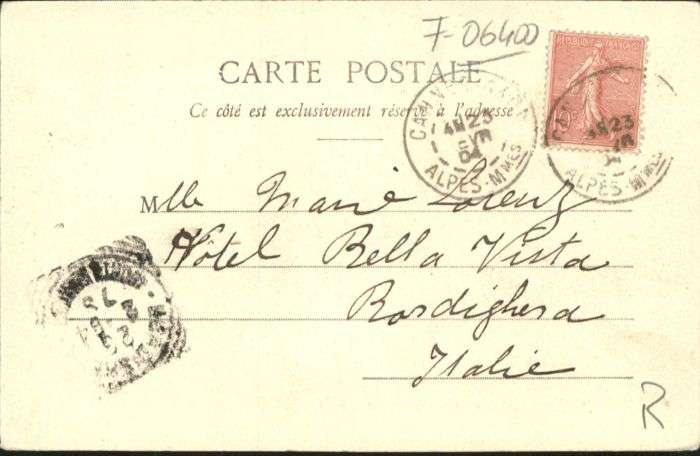 7-06400
REPUBLIQUE FRANÇAISE
CARTE POSTALE
Ce côté est exclusivement réservé à l'adresse
23
04
ALPES-MMES
23
ALPES-MMES
Mlle Marie Lorenz
Hôtel Bella Vista
Bordighera
Italie
R